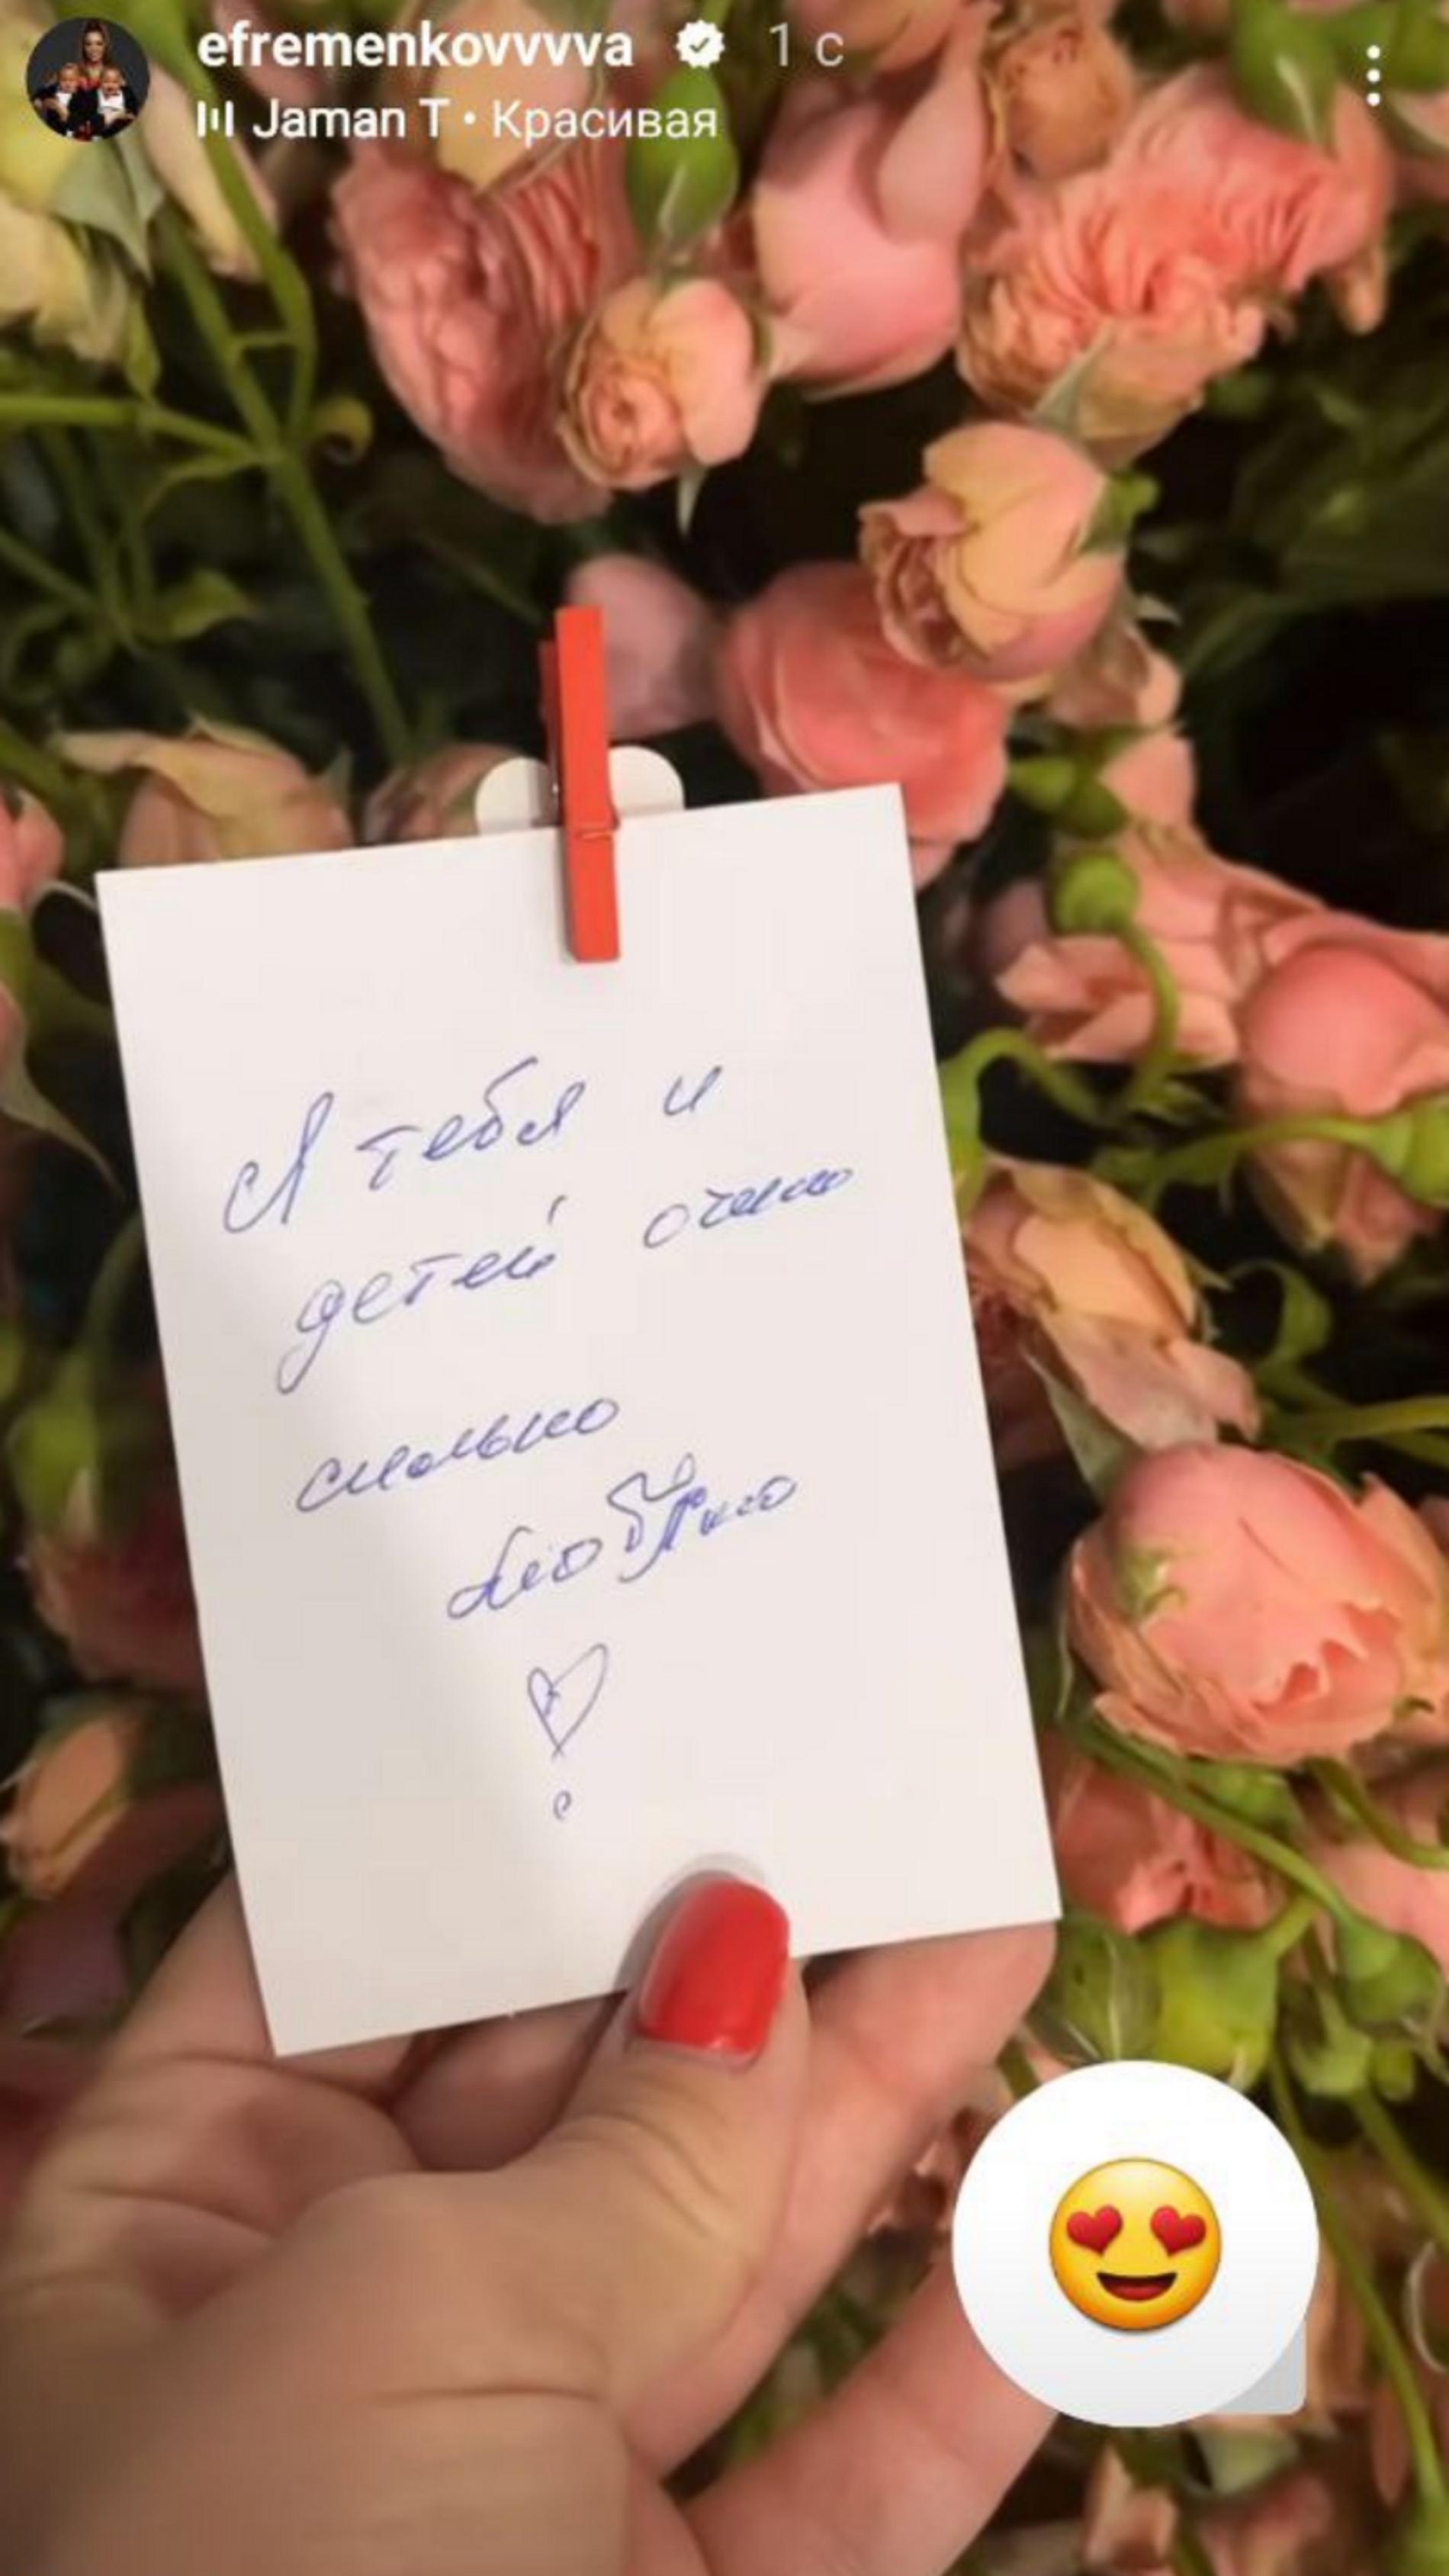 efremenkovvvva 1 с
Jaman T • Красивая
Я тебя и
детей очень
сильно
люблю